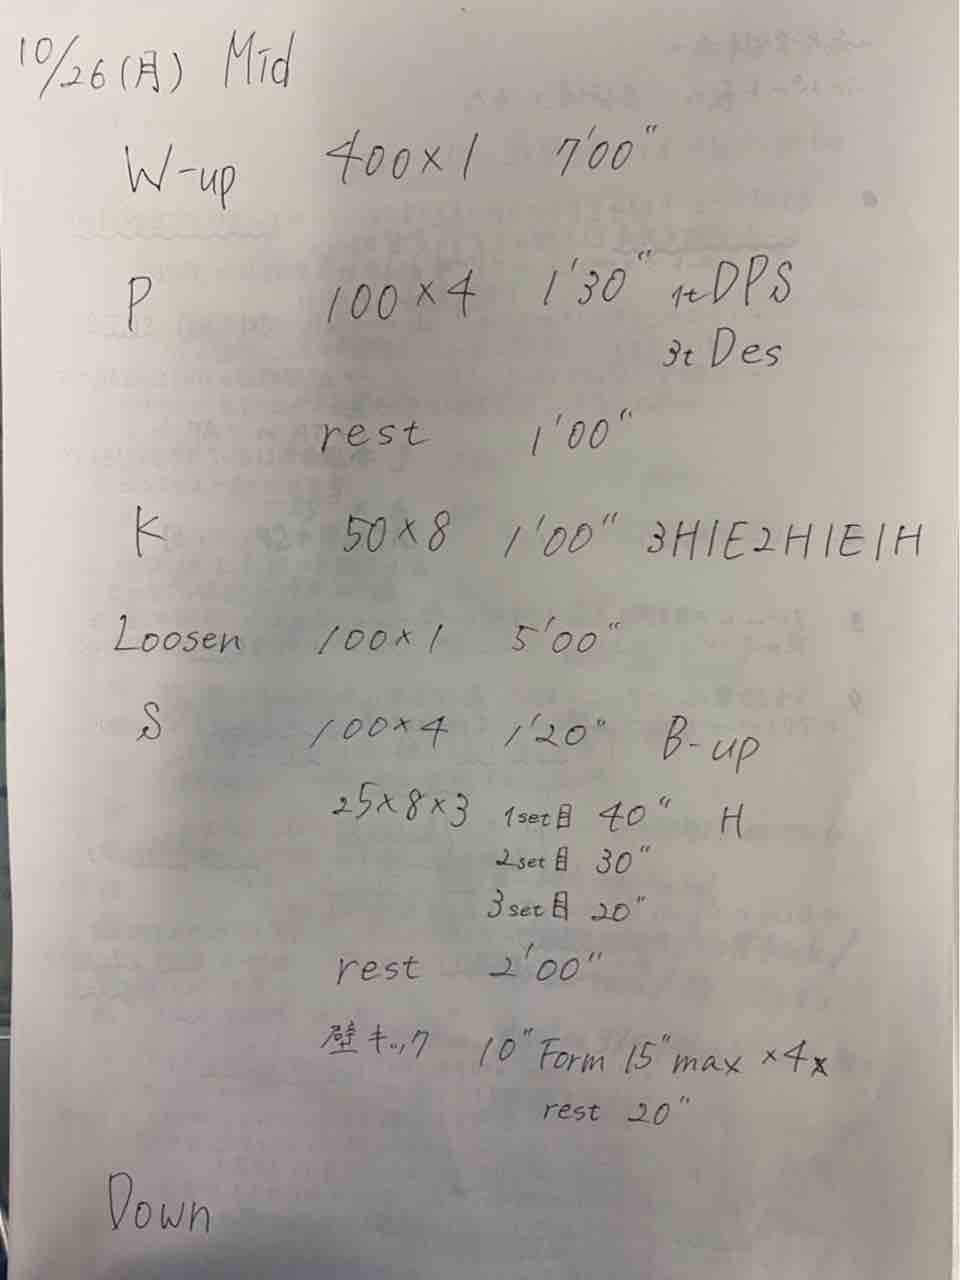 10/26(月) Mid
W-up 400×1 7'00"
P 100×4 1'30" 1t DPS
3t Des
rest 1'00"
K 50×8 1'00" 3H1E2H1E1H
Loosen 100×1 5'00"
S 100×4 1'20" B-up
25×8×3 1set目 40" H
2set目 30"
3set目 20"
rest 2'00"
壁キック 10" Form 15" max ×4
rest 20"
Down